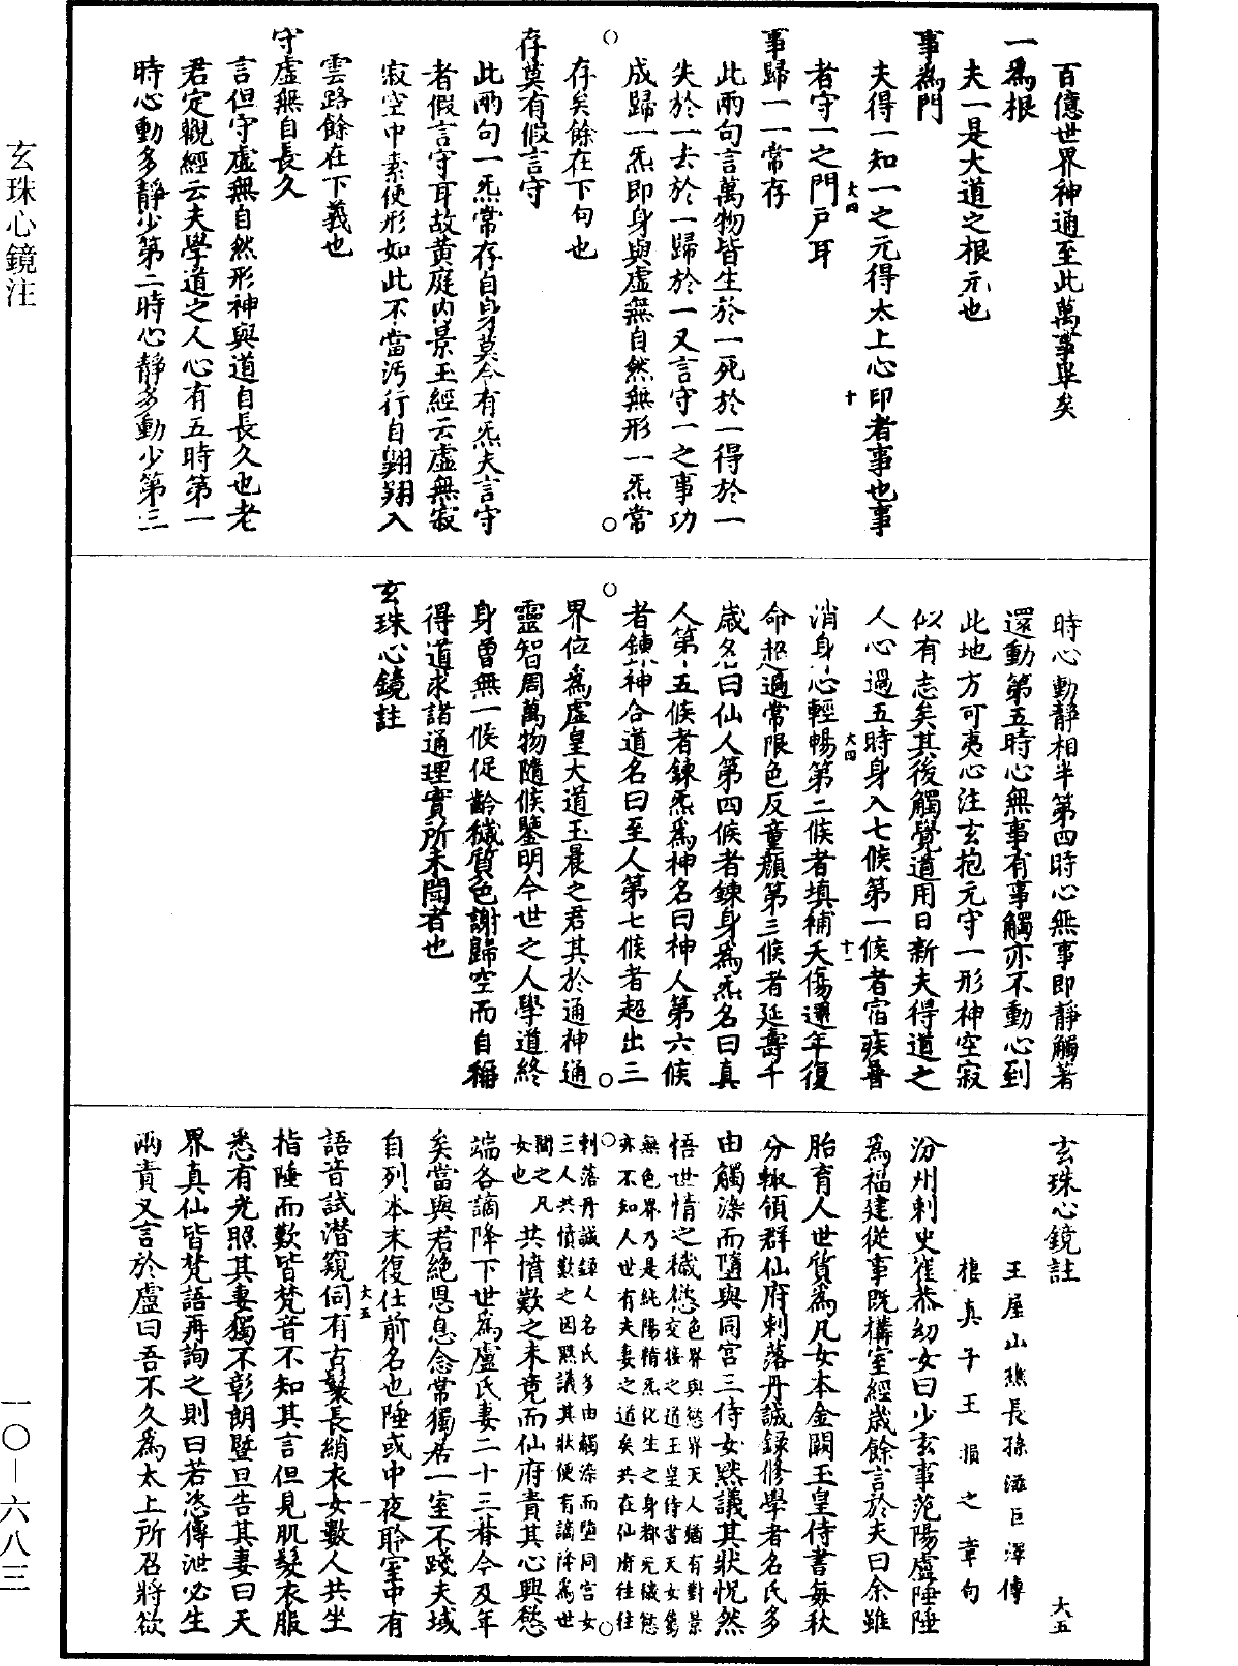 百億世界神通至此萬事畢矣
一爲根
夫一是大道之根元也
事爲門
夫得一知一之元得太上心印者事也事
者守一之門戶耳
事歸一一常存
此兩句言萬物皆生於一死於一得於一
失於一去於一歸於一又言守一之事功
成歸一炁即身與虛無自然無形一炁常
存矣餘在下句也
存莫有假言守
此兩句一炁常存自身莫令有炁夫言守
者假言守耳故黃庭內景玉經云虛無寂
寂空中素使形如此不當汚行自翱翔入
雲路餘在下義也
守虛無自長久
言但守虛無自然形神與道自長久也老
君定觀經云夫學道之人心有五時第一
時心動多靜少第二時心靜多動少第三
大四
十
時心動靜相半第四時心無事即靜觸著
還動第五時心無事有事觸亦不動心到
此地方可夷心注玄抱元守一形神空寂
似有志矣其後觸覺道用日新夫得道之
人心過五時身入七候第一候者宿疾普
消身心輕暢第二候者填補夭傷還年復
命超過常限色反童顏第三候者延壽千
歲名曰仙人第四候者鍊身爲炁名曰真
人第五候者鍊炁爲神名曰神人第六候
者鍊神合道名曰至人第七候者超出三
界位爲虛皇大道玉晨之君其於通神通
靈智周萬物隨候鑒明今世之人學道終
身曾無一候促齡穢質色謝歸空而自稱
得道求諸通理實所未聞者也
玄珠心鏡註
大四
十一
玄珠心鏡註
大五
王屋山樵長孫滋巨澤傳
棲真子王損之章句
汾州刺史崔恭幼女曰少玄事范陽盧陲陲
爲福建從事既構室經歲餘言於夫曰余雖
胎育人世質爲凡女本金闕玉皇侍書每秋
分輙領群仙府刺落丹誠録修學者名氏多
由觸染而墮與同宮三侍女黙議其狀怳然
悟世情之穢慾色界與慾界天人猶有對景
交接之道玉皇侍書天女爲
無色界乃是純陽精炁化生之身都无穢慾
亦不知人世有夫妻之道矣共在仙府往往
刺落丹誠錄人名氏多由觸染而墮同宮女
三人共憤歎之因黙議其狀便有謫降爲世
間之凡
女也
共憤歎之未竟而仙府責其心興慾
端各謫降下世爲盧氏妻二十三朞今及年
矣當與君絕恩息念常獨居一室不踐夫域
自列本末復仕前名也陲或中夜聆室中有
語音試潜窺伺有古鬟長綃衣女數人共坐
指陲而歎皆梵音不知其言但見肌髮衣服
悉有光照其妻獨不彰朗曁旦告其妻曰天
界真仙皆梵語再詢之則曰若恣傳泄必生
兩責又言於盧曰吾不久爲太上所召將欲
大五
一
玄珠心鏡注
一〇—六八三